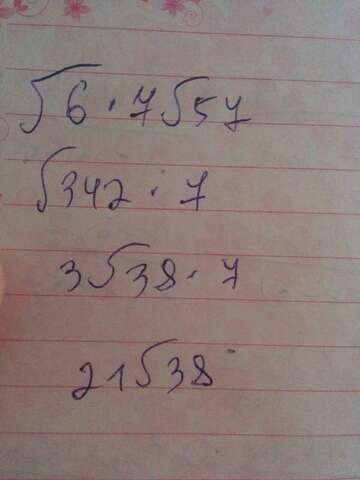 √6 · 7√57
√342 · 7
3√38 · 7
21√38